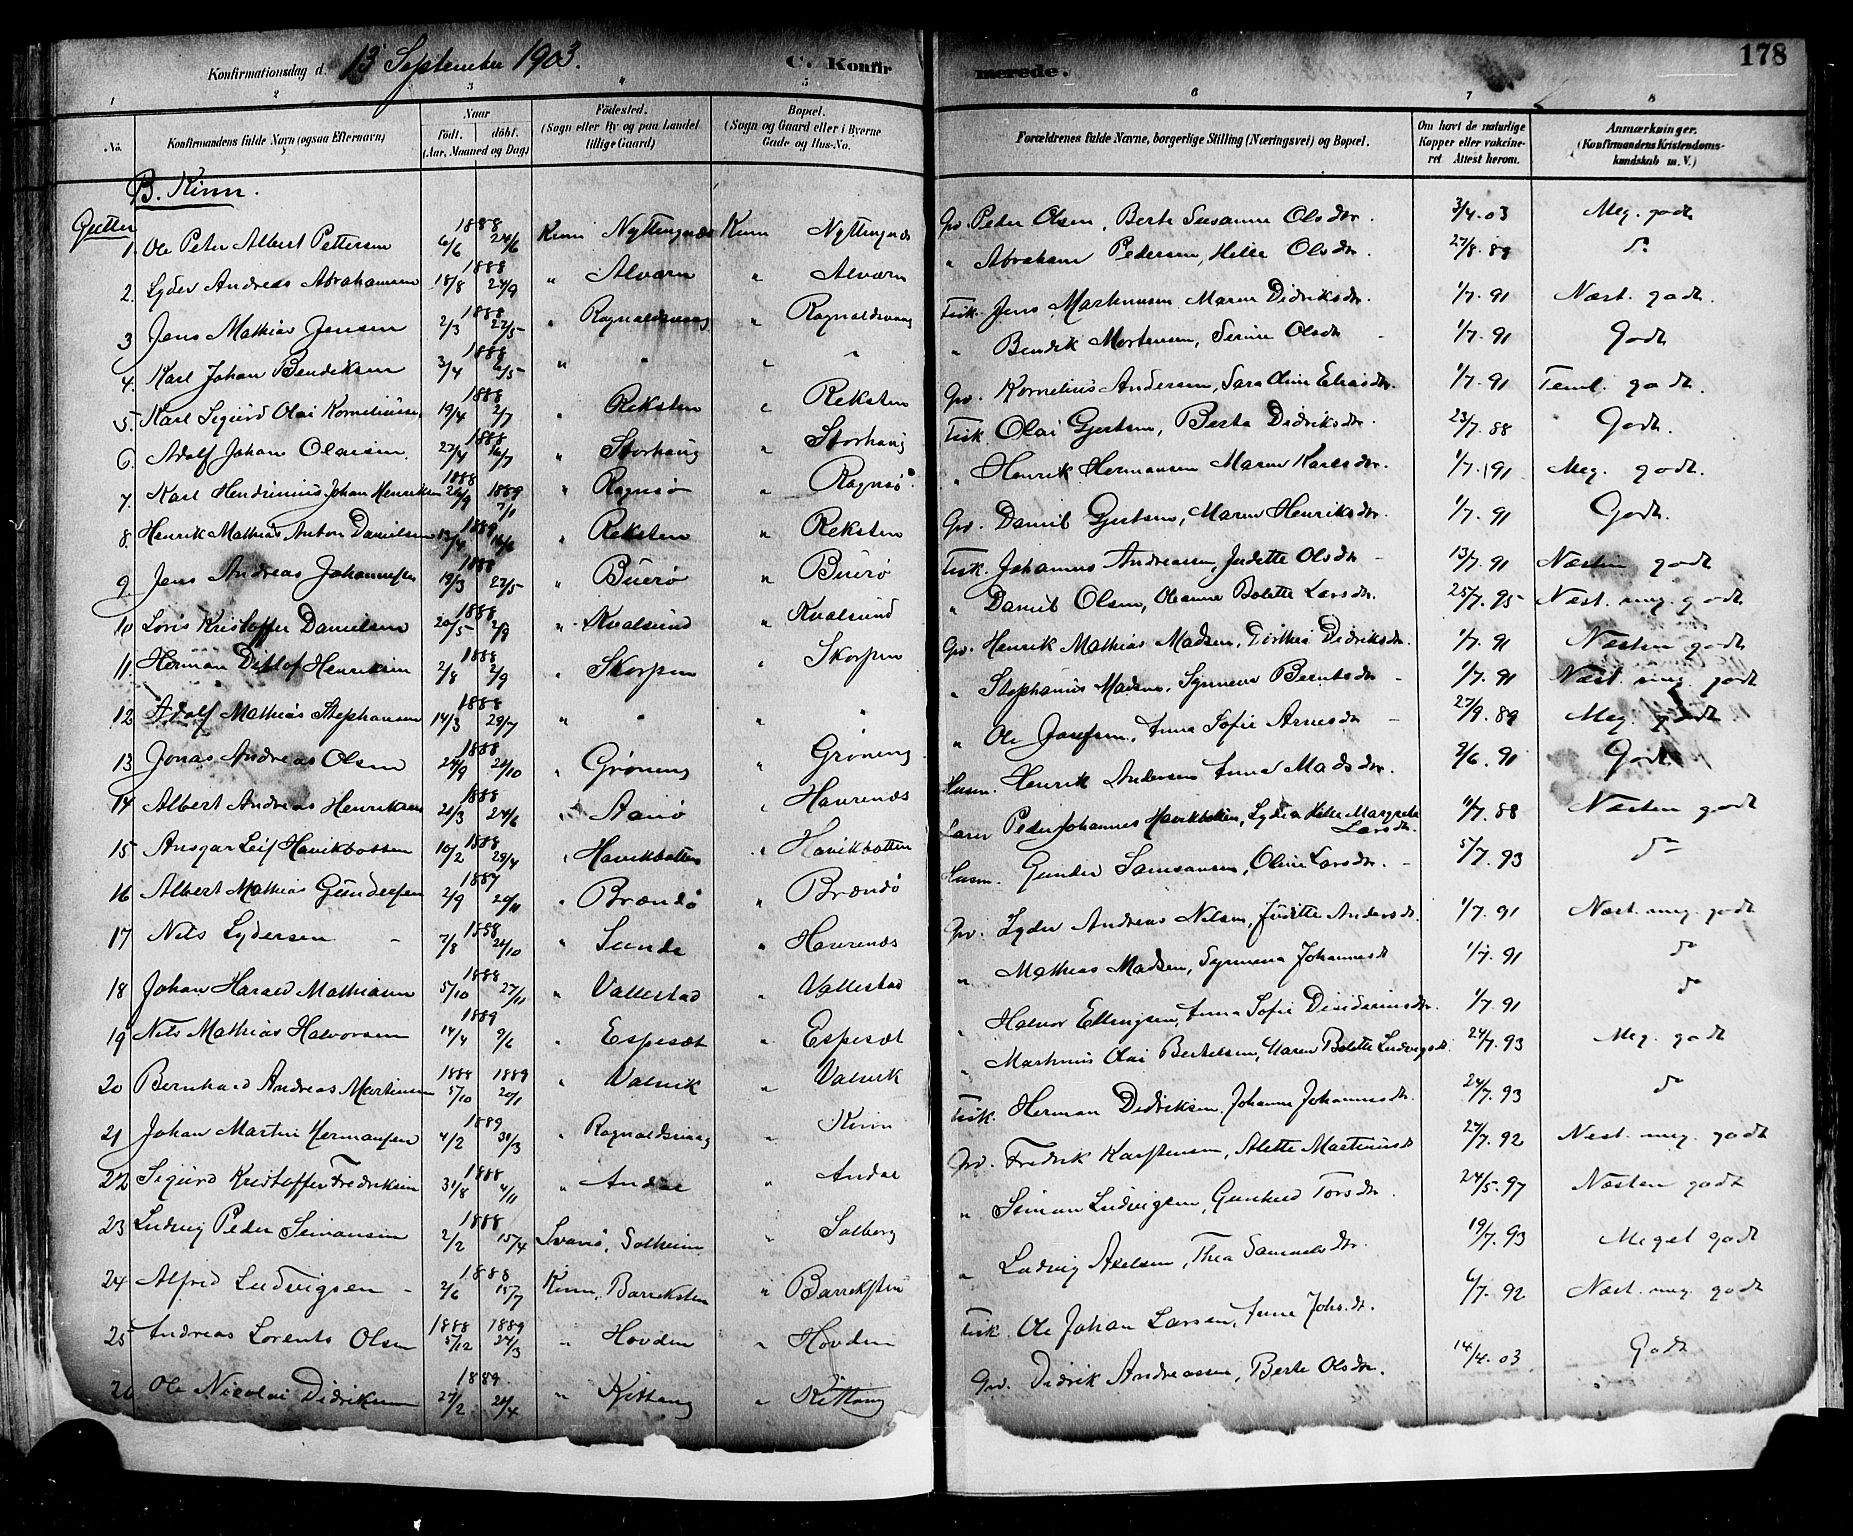 Konfirmationsdag d. 13 September 1903.
C. Konfirmerede.
178
1 2 3 4 5 6 7 8
No. Konfirmandens fulde Navn (ogsaa Efternavn) Naar födt. döbt. (Aar, Maaned og Dag) Födested. (Sogn eller By og paa Landet tillige Gaard) Bopæl. (Sogn og Gaard eller i Byerne Gade og Hus-No. Forældrenes fulde Navne, borgerlige Stilling (Næringsvei) og Bopæl. Om havt de naturlige Kopper eller vakcineret Attest herom. Anmærkninger. (Konfirmandens Kristendomskundskab m. V.)
B. Kinn.
Gutter
1. Ole Peter Albert Pettersen 1888 6/6 24/6 Kinn Nyttingnæs Kinn Nyttingnæs Gv. Peter Olsen, Berte Susanne Olsdtr. 3/4.03 Meg. godt
2. Lyder Andreas Abrahamsen 1888 18/8 24/9 " Alværn " Alværn " Abraham Pedersen, Helle Olsdtr. 27/8.89 do
3 Jens Mathias Jensen 1888 2/3 22/5 " Rognaldsvaag " Rognaldsvaag Fisk. Jens Martinusen Maren Didriksdtr. 1/7.91 Næst. godt.
4. Karl Johan Bendiksen 1888 3/4 6/5 " " " " " Bendik Mortensen, Serine Olsdtr - 1/7.91 Godt
5. Karl Sigurd Olai Kornelius. 1888 19/4 2/7 " Reksten " Reksten Gv. Kornelius Andersen, Sara Oline Eliasdtr. 1/7.91 Teml. godt.
6. Adolf Johan Olaisen. 1888 22/4 16/7 " Storhaug " Storhaug Fisk. Olai Gjertsen, Berta Didriksdtr. 23/7.88 Godt.
7. Karl Hendrinius Johan Henriksen 1888 26/9 1889 7/1 " Rognsø " Rognsø " Henrik Hermansen Maren Karlsdtr. 1/7.91 Meg. godt.
8. Henrik Mathias Anton Danielsen 1889 13/4 16/6 " Reksten " Reksten Gv. Daniel Gjertsen, Maren Henriksdtr. 1/7.91 Godt.
9. Jens Andreas Johannessen 1888 19/3 22/5 " Buerø " Buerø Fisk. Johannes Andreassen, Judette Olsdtr - 13/7.91 Næsten godt
10 Loris Kristoffer Danielsen 1888 20/5 2/9 " Kvalsund " Kvalsund " Daniel Olsen, Oleanne Bolette Larsdtr. 25/7.95 Næst. meg. godt
11. Herman Ditlof Henriksen 1888 2/8 2/9 " Skorpen " Skorpen Gv. Henrik Mathias Madsen, Dorthea Didriksdtr. 1/7.91 Næsten godt
12 Adolf Mathias Stephansen 1888 14/3 29/7 " " " " " Stephanus Madsen, Synneve Berntsdtr - 1/7.91 Næst. meg. godt
13 Jonas Andreas Olsen 1888 24/9 24/10 " Grøning " Grøning " Ole Josefsen, Anna Sofie Arnesdtr - 27/9.89 Meg. godt
14 Albert Andreas Henriksen 1888 21/3 24/6 " Aarø " Haurenæs Husm. Henrik Andersen Anna Madsdtr. 2/6.91 Godt.
15 Ansgar Leif Havikbotten 1888 10/2 29/4 " Havikbotten " Havikbotten Lærer Peder Johannes Havikbotten, Lydia Helle Margrete Larsdtr. 11/7.88 Næsten godt
16 Albert Mathias Gundersen 1887 2/9 20/11 " Brændø " Brændø Husm. Gunder Samsonsen, Oline Larsdtr. - 5/7.93 do
17 Nils Lydersen - 1888 7/8 24/10 " Sunde " Haurenæs Gv. Lyder Andreas Nilsen, Juditte Andersdtr. 1/7.91 Næst. meg. godt
18 Johan Harald Mathiasen 1888 5/10 27/11 " Vallestad " Vallestad " Mathias Madsen, Synneva Johannesdt 1/7.91 do
19 Nils Mathias Halvorsen 1889 14/4 9/6 " Espesæt " Espesæt " Halvor Ellingsen, Anna Sofie Desideriusdtr. 1/7.91 do
20 Bernhard Andreas Martinusen 1888 5/10 1889 20/1 " Valvik " Valvik " Martinus Olai Bertelsen, Maren Bolette Ludvigsdt. 24/7.93 Meg. godt
21 Johan Martin Hermansen 1889 4/2 30/3 " Rognaldsvaag " Kinn Fisk. Herman Didriksen, Johanne Johannesdtr. 24/7.93 do
22 Sigurd Kristoffer Fredriksen 1888 31/8 4/11 " Andal " Andal Gv. Fredrik Karstensen, Alette Martinusdt 27/7.92 Næst. meg. godt
23 Ludvig Peder Simonsen 1888 2/2 15/4 Svanø, Solheim " Solberg " Simon Ludvigsen, Gunhild Torsdtr. 24/5.97 Næsten godt
24 Alfred Ludvigsen - 1888 2/6 15/7 Kinn, Barreksten " Barreksten " Ludvig Axelsen, Thea Samuelsdtr. 19/7.93 Meget godt
25 Andreas Lorents Olsen 1888 5/12 1889 24/3 " Hovden " Hovden Fisk. Ole Johan Larsen, Anne Johs.dt. 6/7.92 Næst. meg. godt
26 Ole Nicolai Didriksen 1889 27/2 21/4 " Kittang " Kittang Gv. Didrik Andreassen, Berte Olsdtr. 14/4.03 Godt